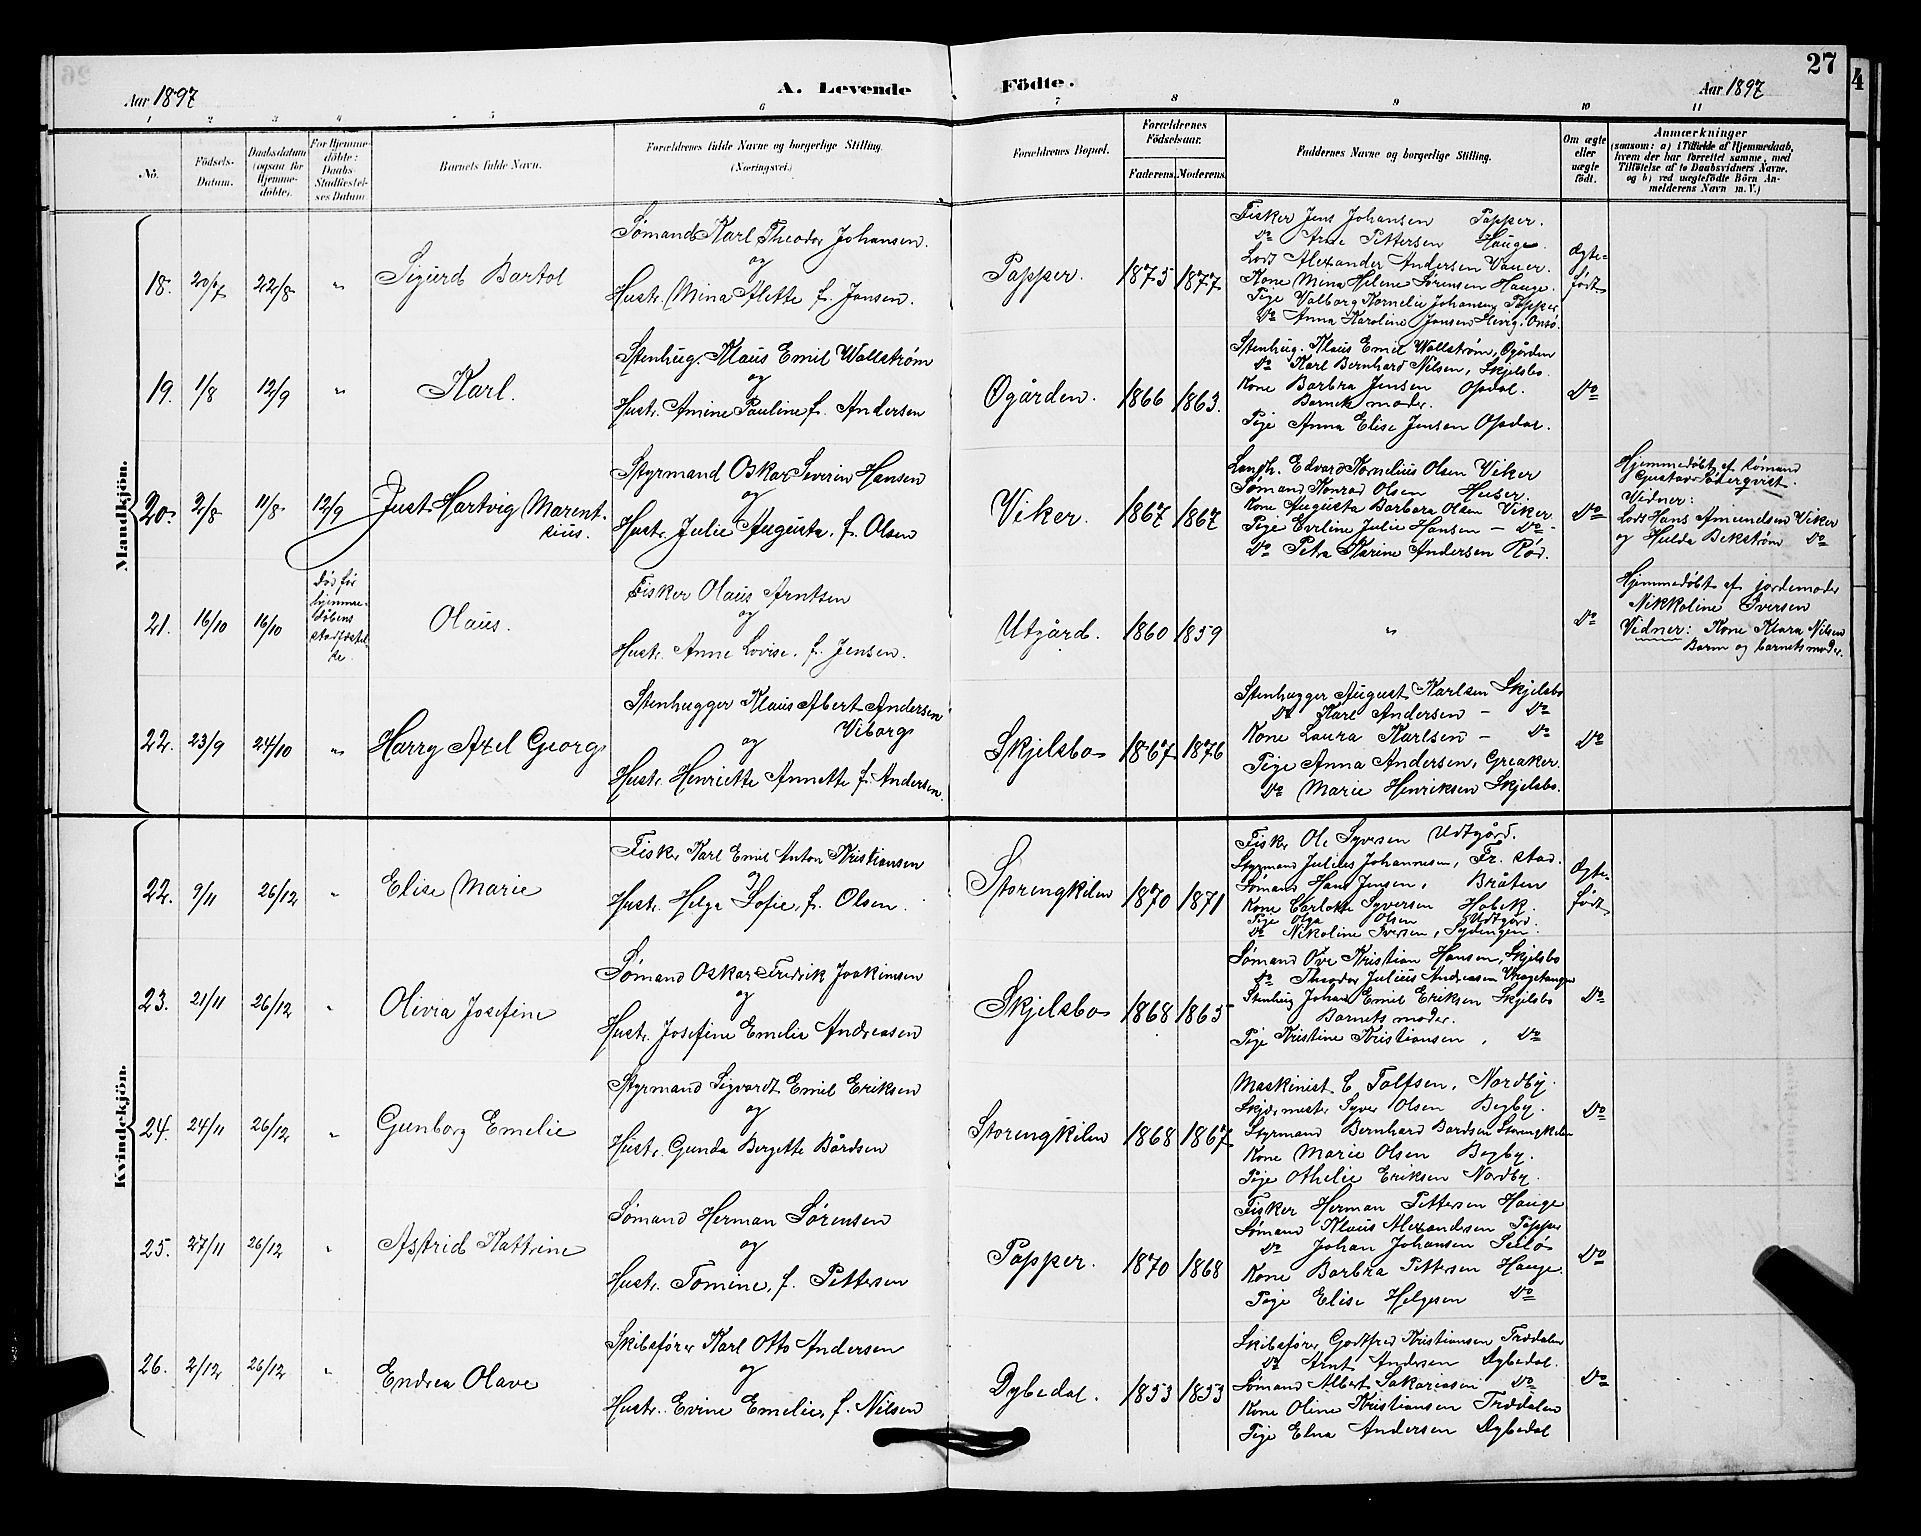 27
Aar 1897
A. Levende Födte.
Aar 1897
1 2 3 4 5 6 7 8 9 10 11
No.
Födsels-Datum.
Daabsdatum (ogsaa for Hjemme-döbte).
For Hjemme-döbte: Daabs-Stadfæstel-ses Datum
Barnets fulde Navn.
Forældrenes fulde Navne og borgerlige Stilling.
(Næringsvei.)
Forældrenes Bopæl.
Forældrenes Födselsaar.
Faderens.
Moderens.
Faddernes Navne og borgerlige Stilling.
Om ægte eller uægte födt.
Anmærkninger
(saasom: a) i Tilfælde af Hjemmedaab,
hvem der har forrettet samme, med
Tilföielse af to Daabsvidners Navne.
og b) ved uægtefödte Börn An-
melderens Navn m. V.)
Mandkjön.
18. 20/7 22/8 " Sigurd Bartol
Sømand Karl Theodor Johansen.
og
Hustr. Mina Alette f. Jansen.
Papper. 1875 1877
Fisker Jens Johansen Papper.
Do Arne Pettersen Hauge.
Lods Alexander Andersen Vauer.
Kone Mina Helene Sørensen Hauge.
Pige Valborg Kornelie Johansen Papper
Do Anna Karoline Jansen Elvig. Onsø.
Ægte-
født.
19. 1/8 12/9 " Karl.
Stenhug. Klaus Emil Wallstrøm
og
Hustr. Amine Pauline f. Andersen
Øgården. 1866 1863.
Stenhug. Klaus Emil Wallstrøm, Øgården
Do Karl Bernhard Nilsen, Skjelsbo.
Kone Barbra Jensen Opdal.
Barnets moder.
Pige Anna Elise Jensen Opdal.
Do
20. 2/8 11/8 12/9 Just Hartvig Marent-
sius.
Styrmand Oskar Severin Hansen
og
Hustr. Julie Augusta. f. Olsen
Viker. 1867 1867
Langh. Edvard Kornelius Olsen Viker
Sømand Konrad Olsen Huser.
Kone Augusta Barbara Olsen Viker
Pige Eveline Julie Hansen - Do -
Do Petra Karine Andersen Rød.
Do
Hjemmedøbt af sømand
Gustav Søderqvist.
Vidner:
Lods Hans Amundsen Viker
og Hulda Bekstrøm Do
21. 16/10 16/10
død før
hjemme-
døbens
stadfæstel-
se.
Olaus.
Fisker Olaus Arntsen
og
Hustr. Anne Lovise. f. Jensen.
Utgård. 1860 1859 " Do
Hjemmedøbt af jordemoder
Nikkoline Iversen
Vidner: Kone Klara Nilsen
Barm og barnets moder.
22. 23/9 24/10 " Harry Axel Georg
Stenhugger Klaus Albert Andersen
og Viborg
Hustr. Henriette Annette f. Andersen.
Skjelsbo 1867 1876
Stenhugger August Karlsen Skjelsbo
Do Karl Andersen - Do
Kone Laura Karlsen - Do
Pige Anna Andersen, Greaker.
Do Marie Henriksen Skjelsbo.
Do
Kvindekjön.
22. 9/11 26/12 " Elise Marie
Fisker Karl Emil Anton Kristiansen
og
Hustr. Helga Sofie, f. Olsen.
Storengkilen 1870 1871
Fisker Ole Syversen Udtgård.
Styrmand Julius Johannesen, Fr. stad.
Sømand Hans Jensen, Bråten
Kone Carlotte Syversen Habek.
Pige Olga Olsen Udtgård.
Do Nikoline Iversen, Sydengen.
Ægte-
født
23. 21/11 26/12 " Olivia Josefine
Sømand Oskar Fredrik Joakimsen
og
Hustr. Josefine Emelie Andreasen
Skjelsbo 1868 1865
Sømand Ove Kristian Hansen, Skjelsbo
Do Theodor Julius Andreasen Vragetangen
Stenhug Johan Emil Eriksen Skjelsbo
Barnets moder.
Pige Kristine Kristiansen, Do
Do
24. 24/11 26/12 " Gunborg Emelie
Styrmand Sigvardt Emil Eriksen
og
Hustr. Gunda Bergette Bårdsen
Storengkilen 1868 1867
Maskinist C. Tolfsen, Nordby.
Skib.mest. Syver Olsen Begby.
Styrmand Bernhard Bardsen Storengkilen
Kone Marie Olsen Begby.
Pige Othelie Eriksen Nordby.
Do
25. 27/11 26/12 " Astrid Kattrine
Sømand Herman Sørensen
og
Hustr. Tomine, f. Pettersen
Papper. 1870 1868
Fisker Herman Pettersen Hauge
Sømand Klaus Alexandersen Papper
Do Johan Johansen Seilø
Kone Barbra Pettersen Hauge.
Pige Elise Helgesen Do
Do
26. 2/12 26/12 " Endrea Olave
Skibsfører Karl Otto Andersen
og
Hustr. Evine Emelie, f. Nilsen
Dybedal. 1853 1853
Skibsfører Godtfred Kristiansen Trødalen
Do Arnt Andersen Dybedal.
Sømand Albert Sakariasen Do
Kone Oline Kristiansen Trødalen
Pige Elna Andersen Dybedal
Do